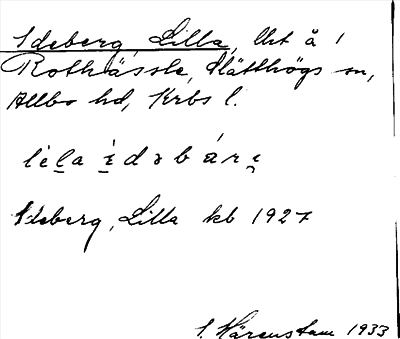 Ideberg, Lilla, lht å 1
Rothässle, Slätthögs sn,
Allbo hd, Krbs l.
lìla ídəbárɩ
Ideberg, Lilla kb 1927
S. Härenstam 1933